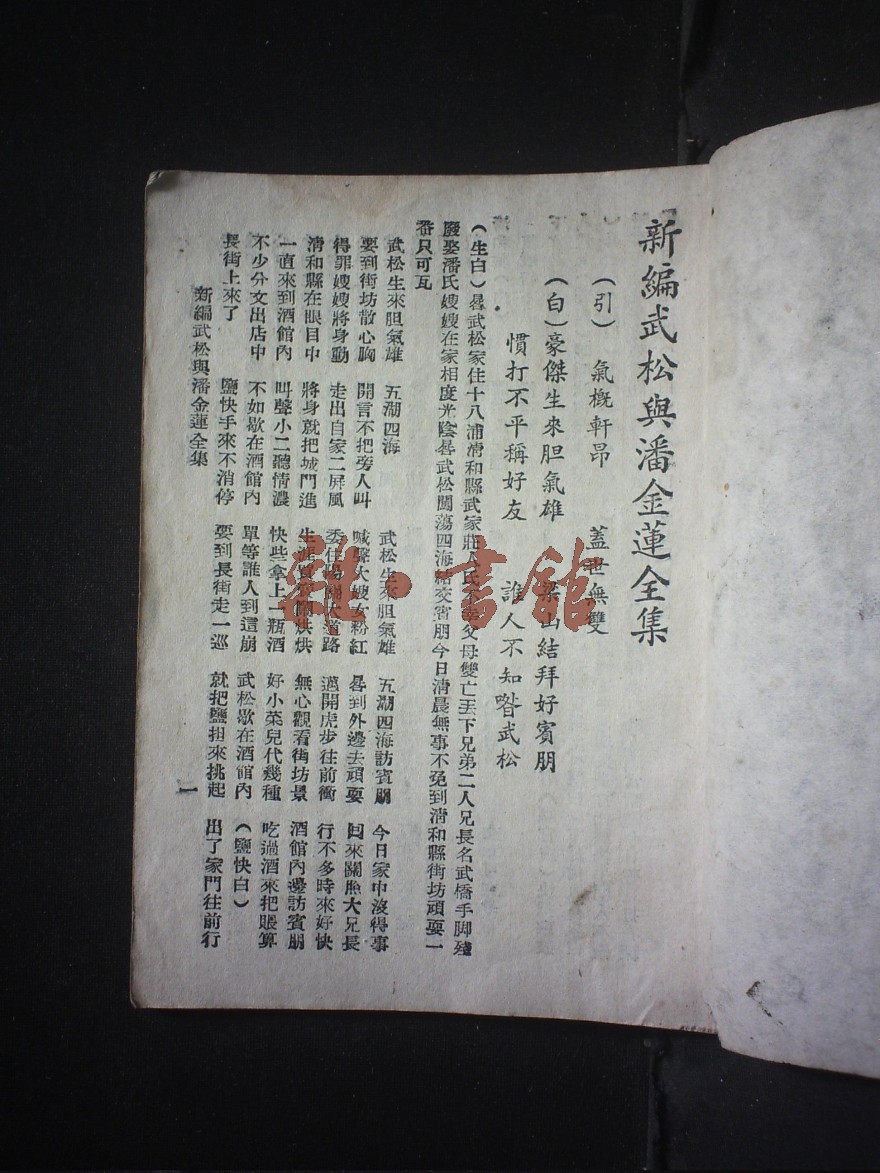 新編武松與潘金蓮全集
（引）　氣概軒昂　　蓋世無雙
（白）豪傑生來胆氣雄　　梁山結拜好賓朋
慣打不平稱好友　　誰人不知喒武松
（生白）㝷武松家住十八浦淸和縣武家莊　　氏不幸父母雙亡丟下兄弟二人兄長名武橋手脚殘
廢娶潘氏嫂嫂在家相度光陰㝷武松闖蕩四海結交賓朋今日淸晨無事不免到淸和縣街坊頑耍一
番只可瓦
武松生來胆氣雄　五湖四海　　武松生來胆氣雄　五湖四海訪賓朋　今日家中沒得事
要到街坊散心胸　開言不把旁人叫　喊聲大嫂女粉紅　㝷到外邊去頑耍　回來關照大兄長
得罪嫂嫂將身動　走出自家二屏風　　　道路　邁開虎步往前衝　行不多時來好快
淸和縣在眼目中　將身就把城門進　生涯買賣鬧烘烘　無心觀看街坊景　酒館內邊訪賓朋
一直來到酒館內　叫聲小二聽情濃　快些拿上一瓶酒　好小菜兒代幾種　吃過酒來把賬算
不少分文出店中　不如歇在酒館內　單等誰人到這崩　武松歇在酒館內　（鹽快白）
長街上來了　鹽快手來不消停　要到長街走一巡　就把鹽担來挑起　出了家門往前行
新編武松與潘金蓮全集
一
雜·書館